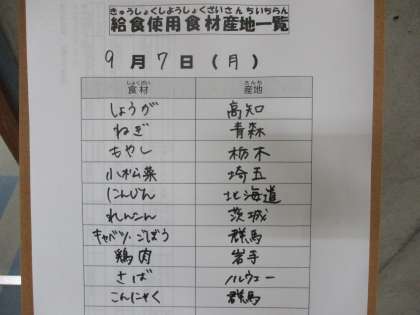 きゅうしょくしようしょくざいさんちいちらん
給食使用食材産地一覧
9月7日(月)
しょくざい さんち
食材 産地
しょうが 高知
ねぎ 青森
もやし 栃木
小松菜 埼玉
にんじん 北海道
れんこん 茨城
キャベツ・ごぼう 群馬
鶏肉 岩手
さば ノルウェー
こんにゃく 群馬